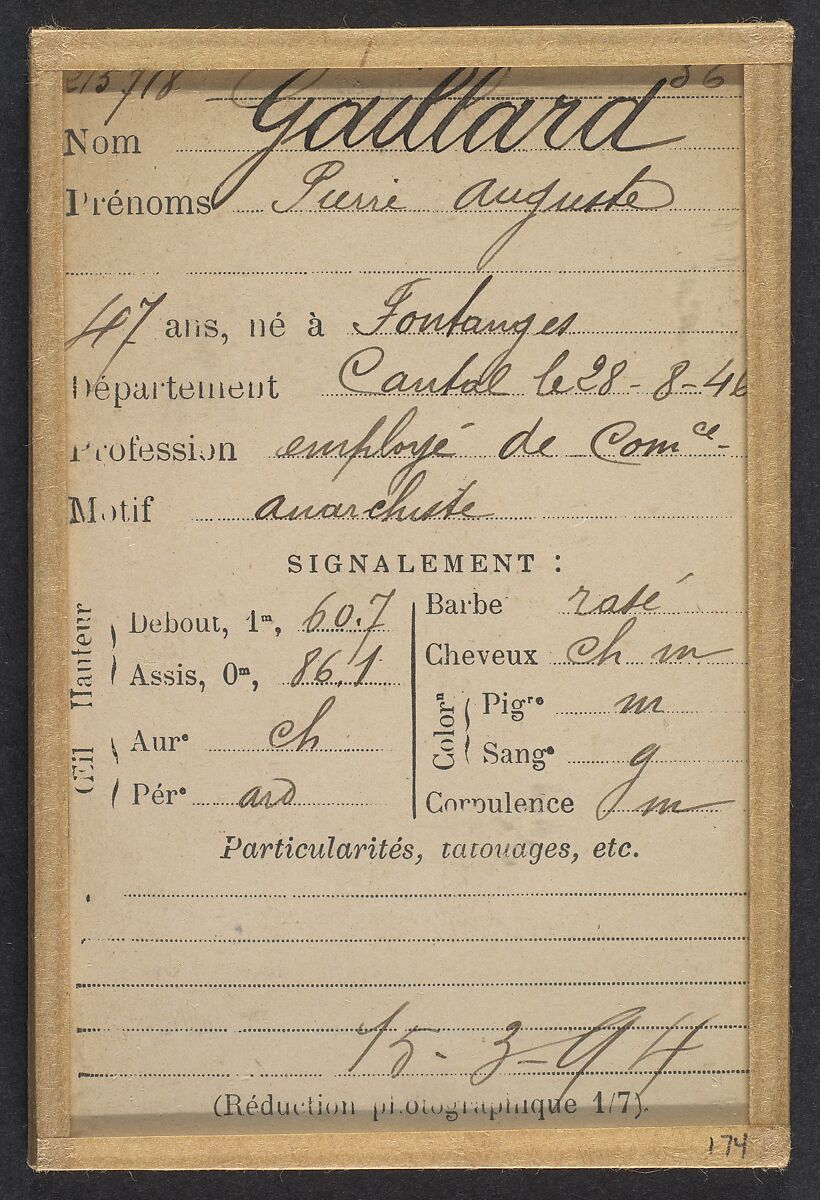 215718 36
Nom Gaillard
Prénoms Pierre Auguste
47 ans, né à Fontanges
Département Cantal le 28-8-46
Profession employé de Comce-
Motif anarchiste
SIGNALEMENT :
Hauteur
Debout, 1m, 60.7
Assis, 0m, 86.1
Œil
Aure ch
Pére ard
Barbe rasé
Cheveux ch m
Colorn
Pigre m
Sange g
Corpulence m
Particularités, tatouages, etc.
15-3-94
(Réduction photographique 1/7).
174